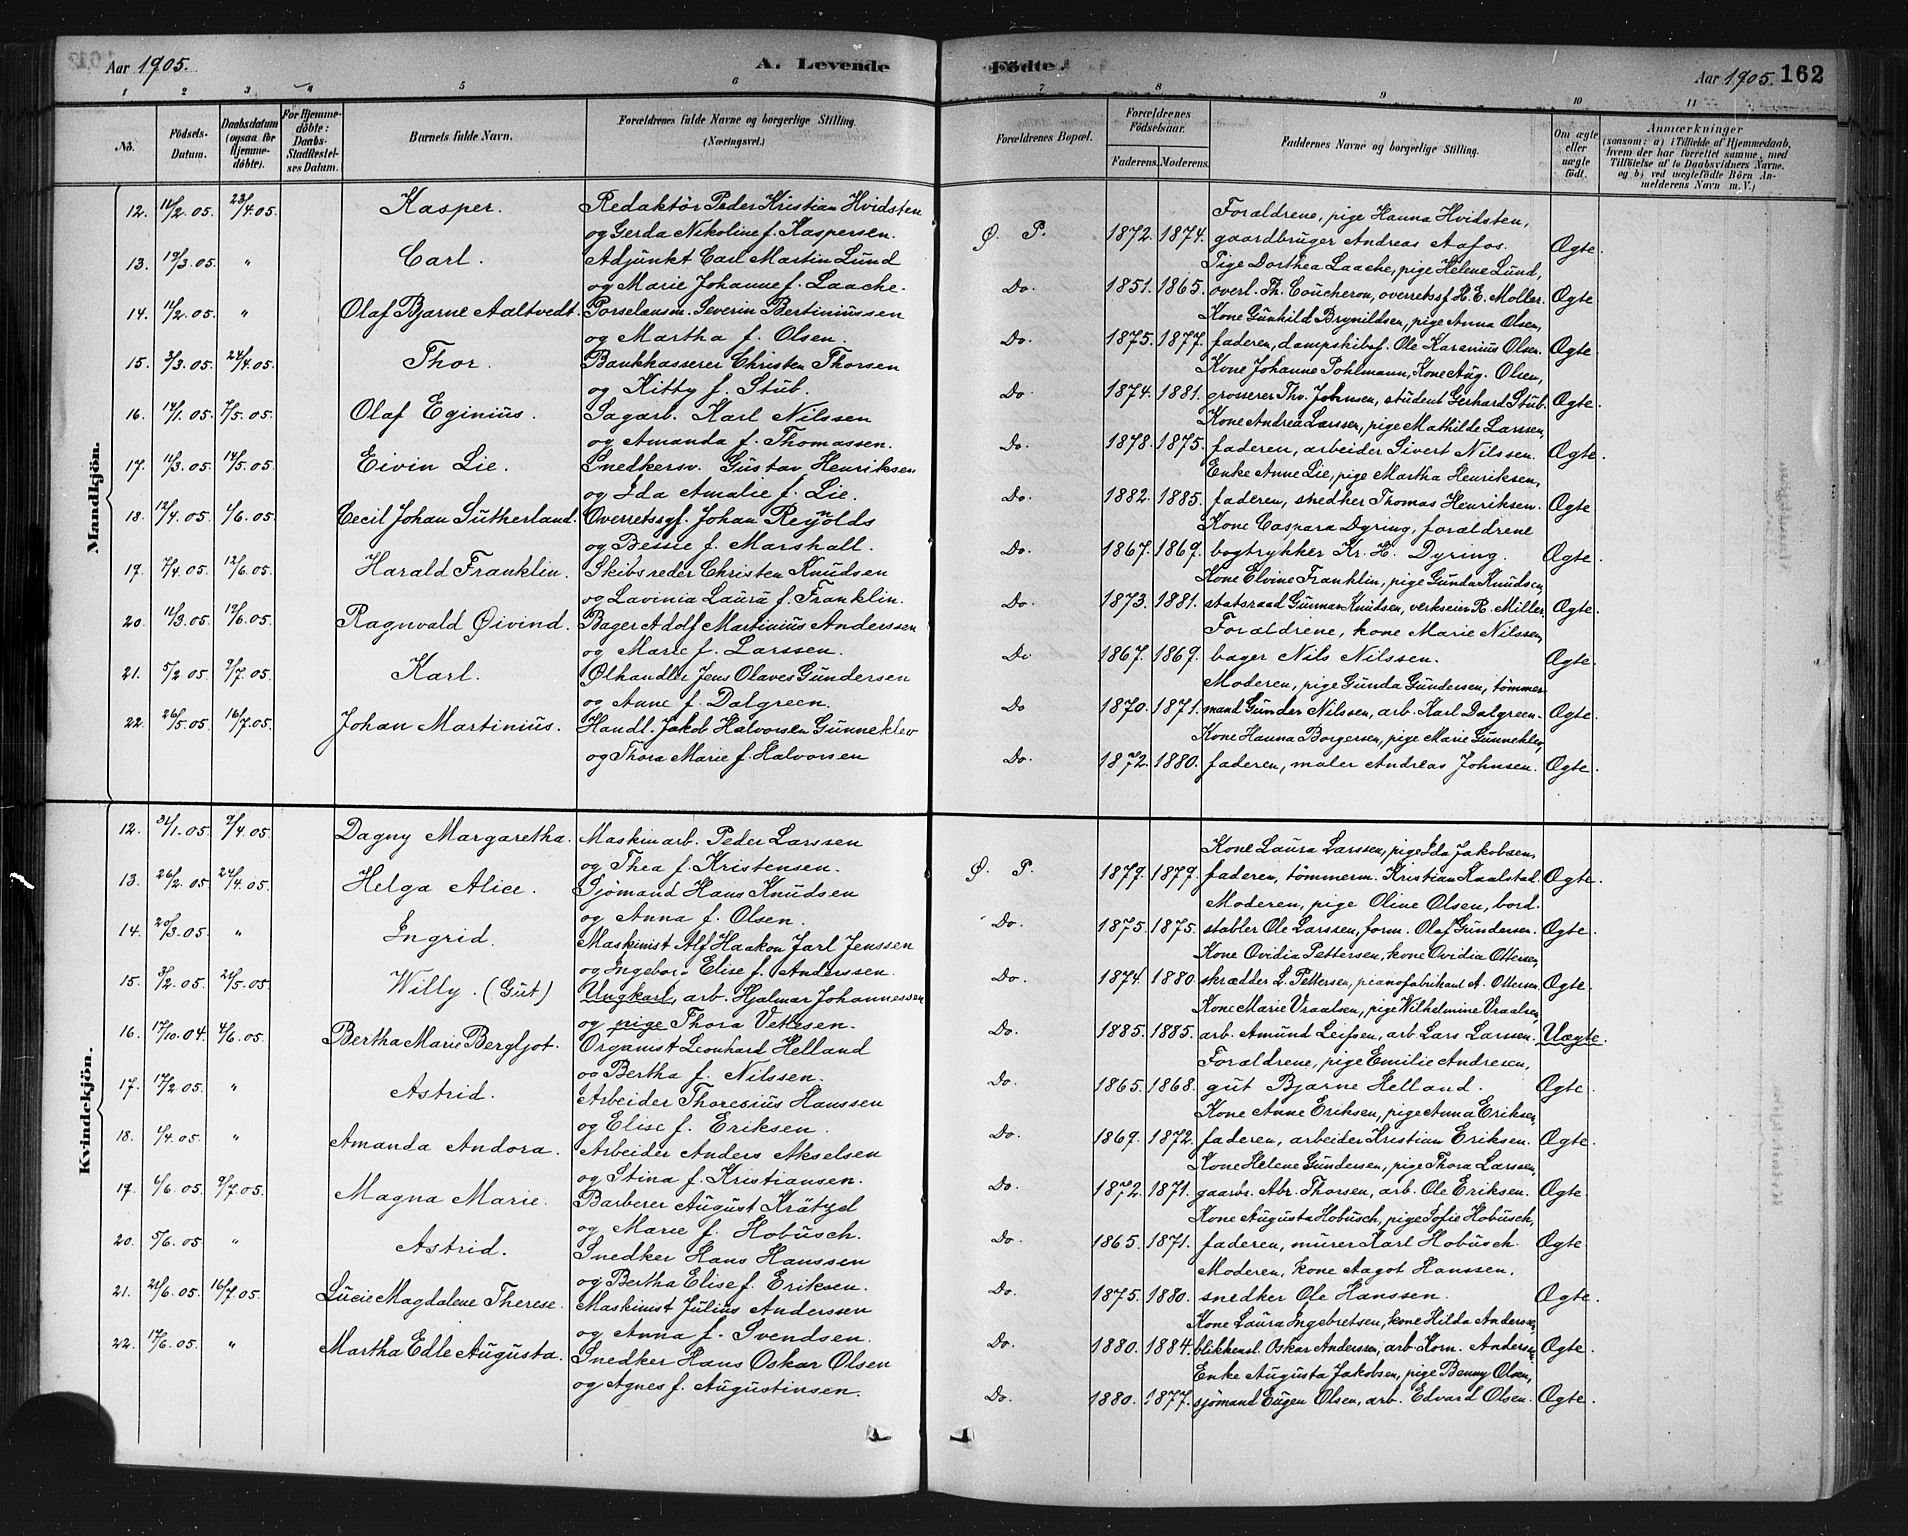 Aar 1905.
A. Levende
Fødte.
Aar 1905. 162
1 2 3 4 5 6 7 8 9 10 11
No.
Födsels-Datum.
Daabsdatum (ogsaa for Hjemmedöbte).
For Hjemmedöbte: Daabs-Stadfæstelses Datum.
Barnets fulde Navn.
Forældrenes fulde Navne og borgerlige Stilling. (Næringsvei.)
Forældrenes Bopæl.
Forældrenes Födselsaar.
Faderens. Moderens.
Faddernes Navne og borgerlige Stilling.
Om ægte eller uægte födt.
Anmærkninger
(saasom: a) i Tilfælde af Hjemmedaab, hvem der har forrettet samme, med Tilföielse af to Daabsvidners Navne, og b) ved uægtefödte Börn Anmelderens Navn m. V.)
Mandkjön.
12. 11/2.05. 23/4.05. Kasper. Redaktör Peder Kristian Hvidsten
og Gerda Nikoline f. Kaspersen.
Ø. P. 1872. 1874. Forældrene, pige Hanna Hvidsten,
gaardbruger Andreas Aafos. Ægte.
13. 19/3.05. " Carl. Adjunkt Carl Martin Lund
og Marie Johanne f. Laache.
Do. 1851. 1865. Pige Dorthea Laache, pige Helene Lund,
overl. Th. Coucheron, overretssf. H. E. Moller. Ægte.
14. 11/2.05. " Olaf Bjarne Aaltvedt. Porselansm. Severin Bertiniussen
og Martha f. Olsen.
Do. 1875. 1877. Kone Gunhild Brynildsen, pige Anna Olsen,
faderen, dampskibsf. Ole Karenius Olsen. Ægte.
15. 3/3.05. 24/4.05. Thor. Bankkasserer Christen Thorsen
og Kitty f. Stub.
Do. 1874. 1881. Kone Johanne Pohlmann, Kone Aug. Olsen,
grosserer Thv. Johnsen, student Gerhard Stub. Ægte.
16. 14/1.05. 7/5.05. Olaf Eginius. Sagarb. Karl Nilssen
og Amanda f. Thomassen.
Do. 1878. 1875. Kone Andrea Larssen, pige Mathilde Larssen,
faderen, arbeider Sivert Nilssen. Ægte.
17. 11/3.05. 14/5.05. Eivin Lie. Snedkersv. Gustav Henriksen
og Ida Amalie f. Lie.
Do. 1882. 1885. Enke Anne Lie, pige Martha Henriksen,
faderen, snedker Thomas Henriksen. Ægte.
18. 12/4.05. 1/6.05. Cecil Johan Sutherland. Overretssgf. Johan Reynolds
og Bessie f. Marshall.
Do. 1867. 1869. Kone Caspara Dyring, forældrene
bogtrykker Kr. H. Dyring. Ægte.
19. 7/4.05. 12/6.05. Harald Franklin. Skibsreder Christen Knudsen
og Lavinia Laura f. Franklin.
Do. 1873. 1881. Kone Elvine Franklin, pige Gunda Knudsen,
statsraad Gunnar Knudsen, verkseier R. Miller. Ægte.
20. 11/3.05. 12/6.05. Ragnvald Øivind. Bager Adolf Martinius Anderssen
og Marie f. Larssen.
Do 1867. 1869. Forældrene, kone Marie Nilssen,
bager Nils Nilssen. Ægte.
21. 5/2.05. 9/7.05. Karl. Ølhandler Jens Olaves Gundersen
og Anne f. Dalgreen.
Do 1870. 1871. Moderen, pige Gunda Gundersen, tömmer
mand Gunder Nilssen, arb. Karl Dalgreen. Ægte.
22. 26/5.05. 16/7.05. Johan Martinius. Handl. Jakob Halvorsen Gunneklev
og Thora Marie f. Halvorsen
Do. 1872. 1880. Kone Hanna Borgersen, pige Marie Gunneklev,
faderen, maler Andreas Johnsen. Ægte.
Kvindekjön.
12. 31/1.05. 9/4.05. Dagny Margaretha. Maskinarb. Peder Larssen
og Thea f. Kristensen.
Ø. P. 1877. 1879. Kone Laura Larssen, pige Ida Jakobsen,
faderen, tömmerm. Kristian Kaalstad. Ægte.
13. 26/2.05. 24/4.05. Helga Alice. Sjömand Hans Knudsen
og Anna f. Olsen.
Do. 1875. 1875. Moderen, pige Oline Olsen, bord.
stabler Ole Larssen, form. Olaf Gundersen. Ægte.
14. 20/3.05. " Ingrid. Maskinist Alf Haakon Jarl Jenssen
og Ingeborg Elise f. Anderssen.
Do. 1874. 1880. Kone Ovidia Pettersen, kone Ovidia Ottersen,
skrædder L. Pettersen, pianofabrikant A. Ottersen. Ægte.
15. 3/2.05. 21/5.05. Willy. (Gut) Ungkarl, arb. Hjalmar Johannessen
og pige Thora Vetlesen.
Do. 1885. 1885. Kone Marie Vraalsen, pige Wilhelmine Vraalsen,
arb. Amund Leifsen, arb. Lars Larssen. Uægte.
16. 17/10.04. 4/6.05. Bertha Marie Bergljot. Organist Leonhard Helland
og Bertha f. Nilssen.
Do. 1865. 1868. Forældrene, pige Emilie Andresen,
gut Bjarne Helland. Ægte.
17. 17/2.05. " Astrid. Arbeider Thoresius Hanssen
og Elise f. Eriksen.
Do. 1869. 1872. Kone Anne Eriksen, pige Anna Eriksen,
faderen, arbeider Kristian Eriksen. Ægte.
18. 1/4.05. " Amanda Andora. Arbeider Anders Akselsen
og Stina f. Kristiansen.
Do. 1872. 1871. Kone Helene Gundersen, pige Thora Larssen,
gaardbr. Abr. Thorsen, arb. Ole Eriksen. Ægte.
19. 6/6.05. 9/7.05. Magna Marie. Barberer August Krätzel
og Marie f. Hobusch.
Do. 1865. 1871. Kone Augusta Hobusch, pige Sofie Hobusch,
faderen, murer Karl Hobusch. Ægte.
20. 5/6.05 " Astrid. Snedker Hans Hanssen
og Bertha Elise f. Eriksen.
Do. 1875. 1880. Moderen, kone Aagot Hanssen,
snedker Ole Hanssen. Ægte.
21. 21/6.05. 16/7.05. Lucie Magdalene Therese. Maskinist Julius Andersen
og Anna f. Svendsen.
Do. 1880. 1884. Kone Laura Ingebretsen, kone Hilda Anderssen,
blikkensl. Oskar Anderssen, arb. Korn. Anderssen. Ægte.
22. 17/6.05. " Martha Edle Augusta. Snedker Hans Oskar Olsen
og Agnes f. Augustinsen.
Do. 1880. 1877. Enke Augusta Jakobsen, pige Benny Olsen,
sjömand Eugen Olsen, arb. Edvard Olsen. Ægte.